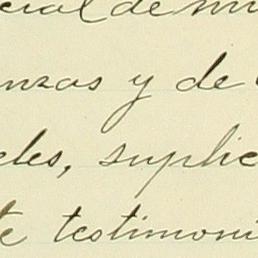 cial de mi
nzas y de
les, suplic
te testimoni